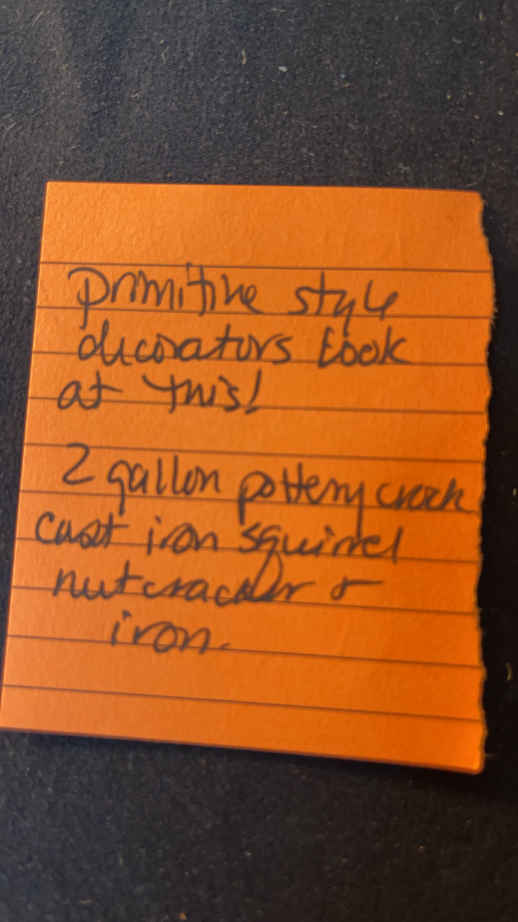 primitive style
decorators look
at this!
2 gallon pottery crock
cast iron squirrel
nutcracker &
iron.